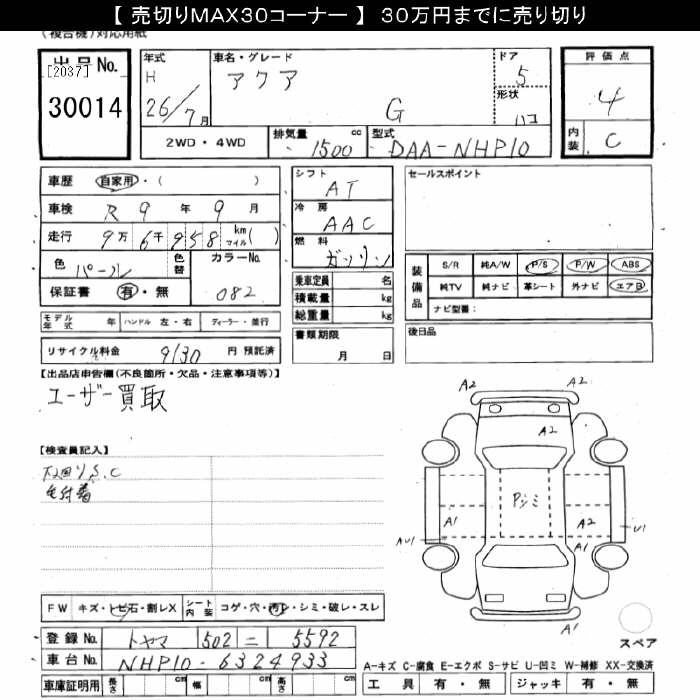 【 売切りMAX30コーナー 】 30万円までに売り切り
(複合機)対応用紙
出品No.
[2037]
30014
年式
H
26/7月
車名・グレード
アクア
G
ドア
5
形状
ハコ
2WD・4WD
排気量 1500 cc
型式 DAA-NHP10
評価点
4
内装 C
車歴 自家用・( )
車検 R 9 年 9 月
走行 9万 6千 9 5 8 km マイル ( )
色 パール
色替
カラーNo.
082
保証書 有・無
モデル年式 年 ハンドル 左・右 ディーラー・並行
リサイクル料金 9130 円 預託済
シフト
AT
冷房
AAC
燃料
ガソリン
乗車定員 名
積載量 kg
総重量 kg
書類期限
月 日
セールスポイント
装備品
S/R 純A/W P/S P/W ABS
純TV 純ナビ 革シート 外ナビ エアB
ナビ型番:
後日品
【出品店申告欄(不良箇所・欠品・注意事項等)】
ユーザー買取
【検査員記入】
下廻りS.C
毛付着
FW キズ・トビ石・割レX シート内装 コゲ・穴・汚レ・シミ・破レ・スレ
登録No. トヤマ 502 ニ 5592
車台No. NHP10-6324933
車庫証明用 長さ cm 幅 cm 高さ cm
A2 A2
A2
Pシミ
A1 A2 U1
AU1
A1
スペア
A-キズ C-腐食 E-エクボ S-サビ U-凹ミ W-補修 XX-交換済
工具 有・無 ジャッキ 有・無